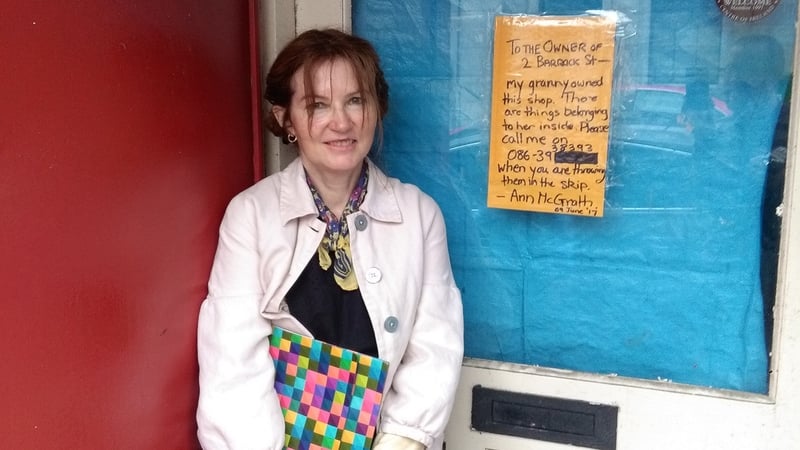 WELCOME
TO THE OWNER OF
2 BARRACK ST—
my granny owned
this shop. There
are things belonging
to her inside. Please
call me on
38393
086-39
when you are throwing
them in the skip.
— Ann McGrath
09 June '17